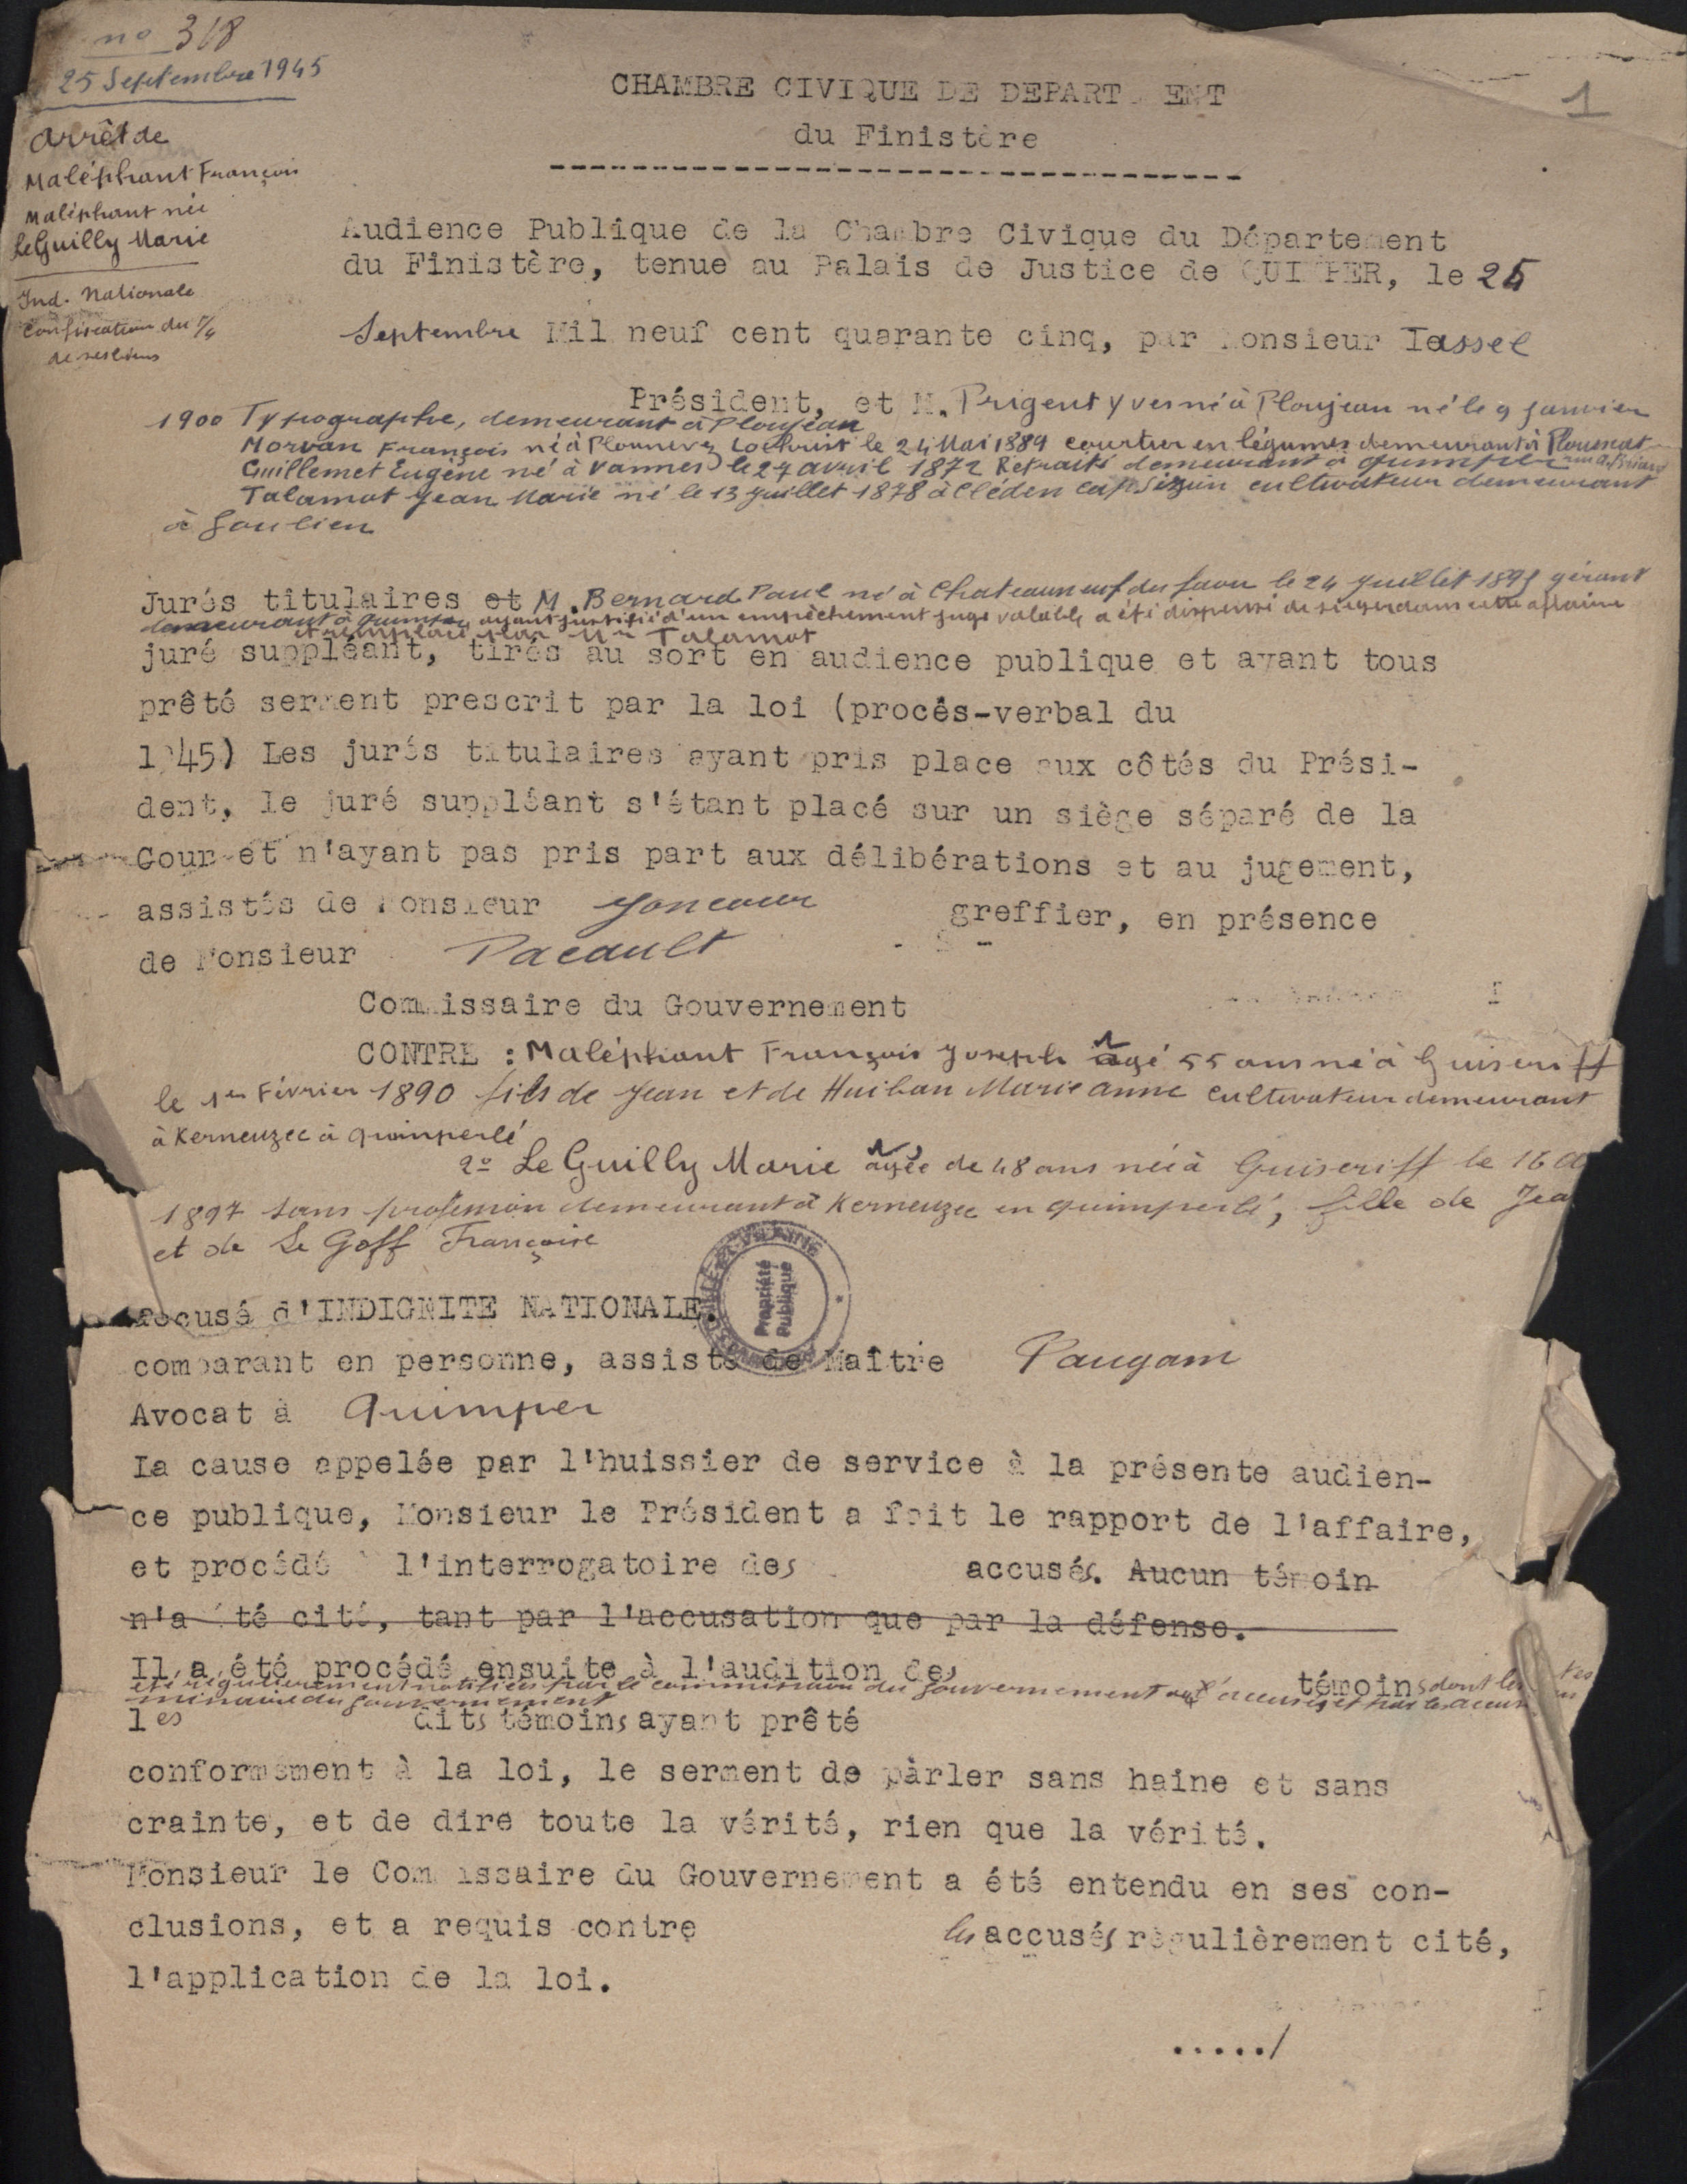 no 318
25 Septembre 1945
Arrêt de
Maléphant François
Maléphant née
Le Guilly Marie
Ind. Nationale
Confiscation du 1/4
de ses biens
1
CHAMBRE CIVIQUE DE DEPART ENT
du Finistère
Audience Publique de la Chambre Civique du Département
du Finistère, tenue au Palais de Justice de QUIMPER, le 25
Septembre Mil neuf cent quarante cinq, par Monsieur Tassel
Président, et M. Prigent Yves né à Ploujean né le 9 janvier
1900 Typographe, demeurant à Ploujean
Morvan François né à Plounevez Lochrist le 24 Mai 1889 courtier en légumes demeurant à
Guillemet Eugène né à Vannes le 27 avril 1872 Retraité demeurant à Quimper
Talamot Jean Marie né le 13 juillet 1878 à Cléden Cap Sizun cultivateur demeurant
à Goulien
Jurés titulaires et M. Bernard Paul né à Chateauneuf du Faou le 24 juillet gérant
demeurant à Quimper ayant justifié d'un empêchement jugé valable a été dispensé de sieger dans cette affaire
et remplacé par Mr Talamot
juré suppléant, tirés au sort en audience publique et ayant tous
prêté serment prescrit par la loi (procès-verbal du
1945) Les jurés titulaires ayant pris place aux côtés du Prési-
dent, le juré suppléant s'étant placé sur un siège séparé de la
Cour et n'ayant pas pris part aux délibérations et au jugement,
assistés de Monsieur Joncour greffier, en présence
de Monsieur Pacault
Commissaire du Gouvernement
CONTRE : Maléphant François Joseph âgé 55 ans né à Guiscriff
le 1er Février 1890 fils de Jean et de Huiban Marie Anne cultivateur demeurant
à Kerneuzec à Quimperlé
2º Le Guilly Marie âgée de 48 ans née à Guiscriff le 16
1897 sans profession demeurant à Kerneuzec en Quimperlé, fille de Jea
et de Le Goff Françoise
Propriété
Publique
accusé d'INDIGNITE NATIONALE.
comparant en personne, assisté de Maître Paugam
Avocat à Quimper
La cause appelée par l'huissier de service à la présente audien-
ce publique, Monsieur le Président a fait le rapport de l'affaire,
et procédé à l'interrogatoire des accusés. Aucun témoin
n'a été cité, tant par l'accusation que par la défense.
Il a été procédé ensuite à l'audition des témoins dont les
été régulièrement notifiés par le commissaire du Gouvernement aux accusés et par les
missaire du gouvernement
les dits témoins ayant prêté
conformément à la loi, le serment de parler sans haine et sans
crainte, et de dire toute la vérité, rien que la vérité.
Monsieur le Commissaire du Gouvernement a été entendu en ses con-
clusions, et a requis contre les accusés régulièrement cité,
l'application de la loi.
...../